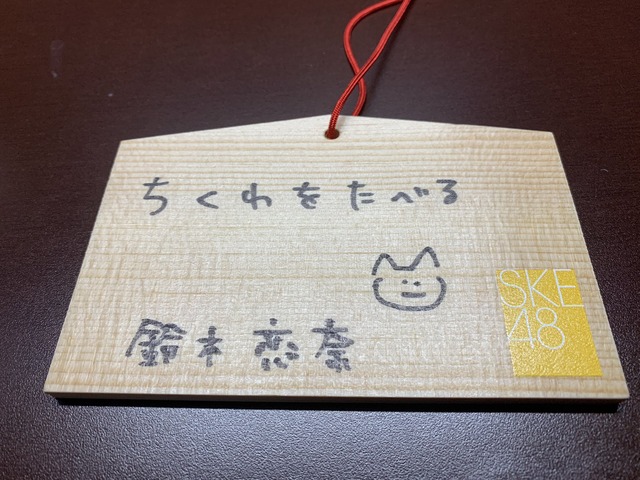 ちくわをたべる
鈴木恋奈
SKE
48